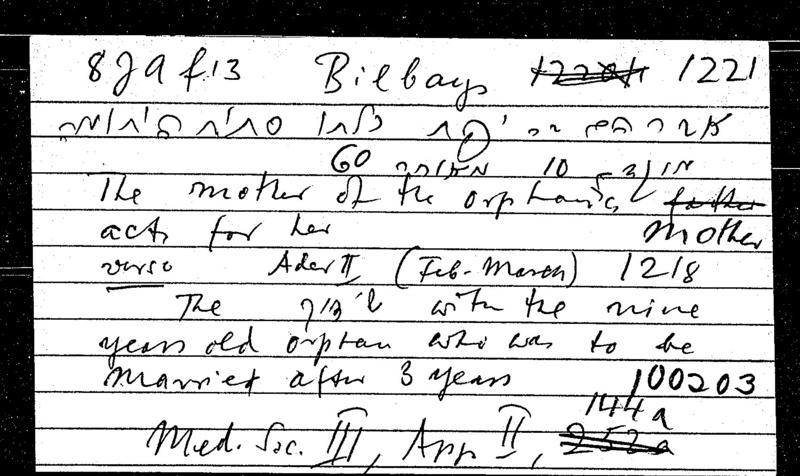 8 J 9 f.13 Bilbays 1221
אברהם בר יפת כלתו סתית היתומה
10 מאוחר 60
The mother of the orphan's father
acts for her mother
verso Adar II (Feb-March) 1218
The with the nine
years old orphan who was to be
married after 3 years 100203
144a
Med. Soc. III, App II, 252a